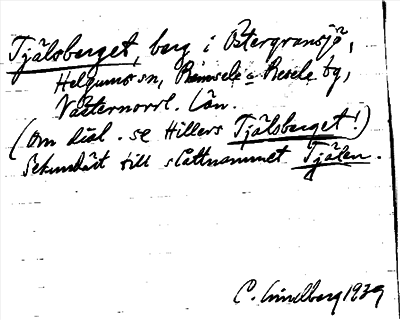 Tjälsberget, berg i Östergransjö,
Helgums sn, Ramsele o Resele tg,
Västernorrl. Län.
(Om dial. se Hillers Tjälsberget!)
Sekundärt till slåttnamnet Tjälen.
C. Lindberg 1939